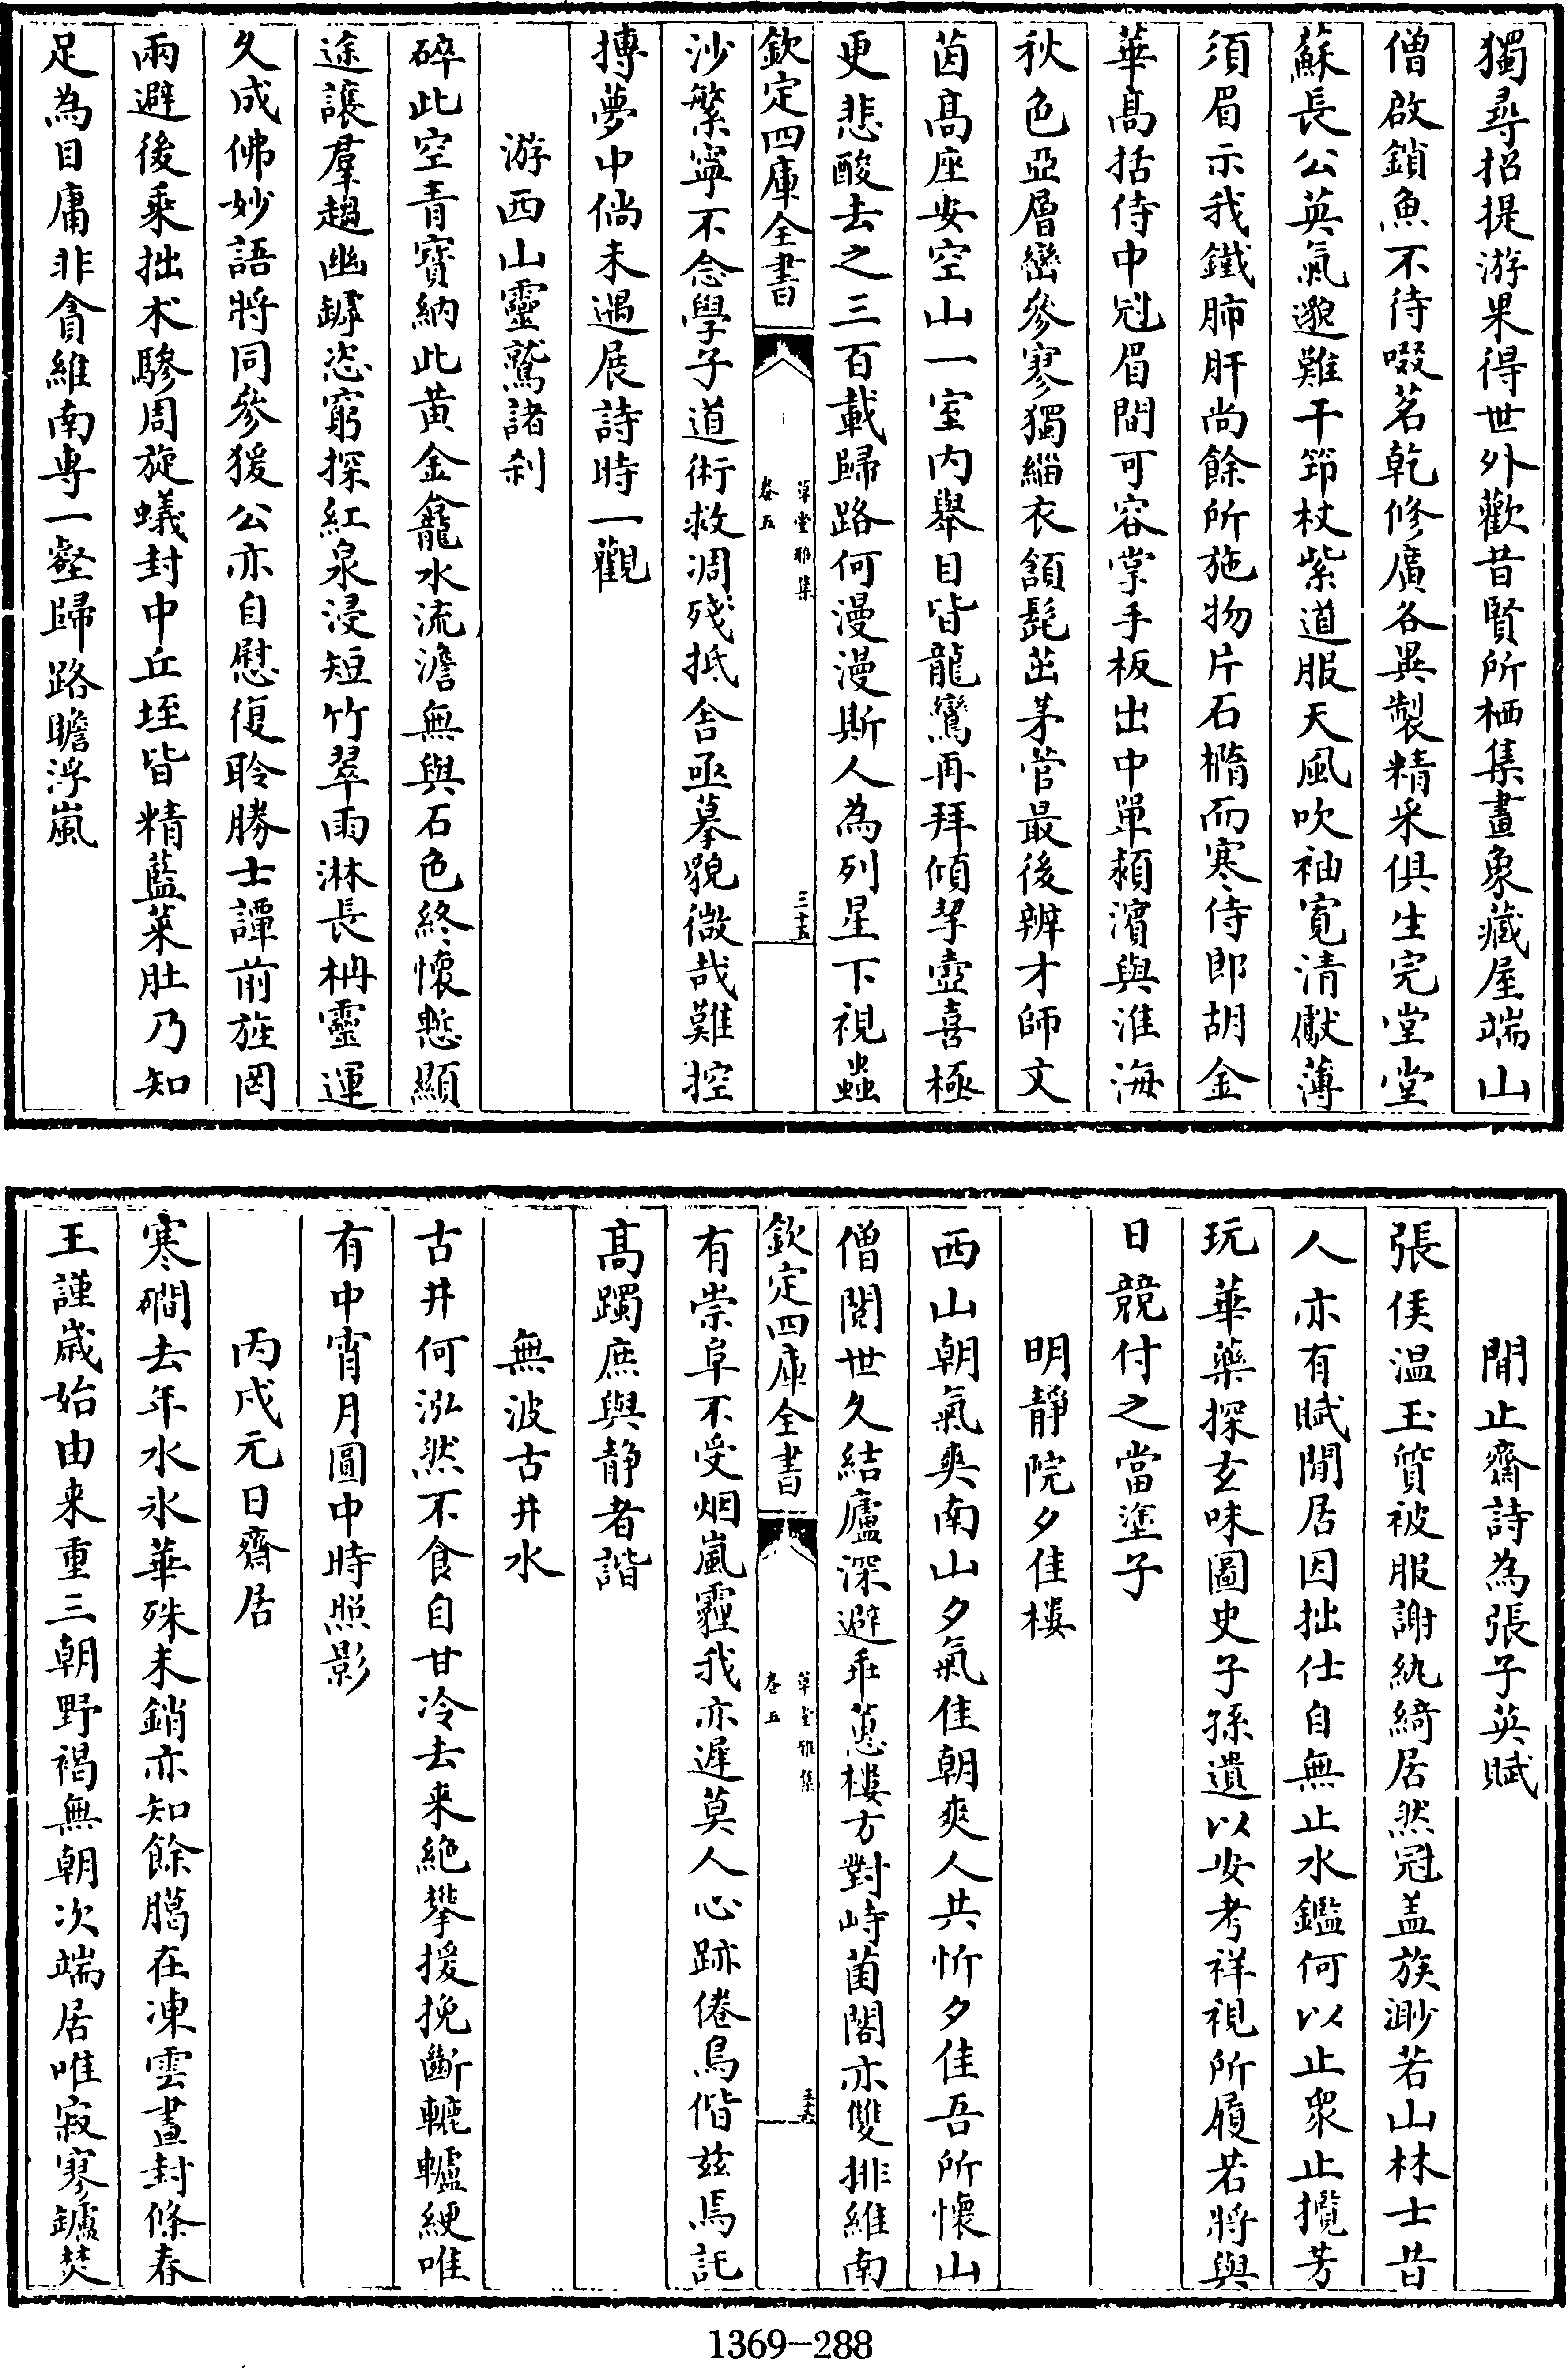 獨尋招提游果得世外歡昔賢所栖集畫象藏屋端山
僧啟鎖魚不待啜茗乾修廣各異製精采俱生完堂堂
蘇長公英氣邈難干笻杖紫道服天風吹袖寬清獻薄
須眉示我鐵肺肝尚餘所施物片石橢而寒侍郎胡金
華髙括侍中冠眉間可容掌手板出中單頰濱與淮海
秋色亞層巒參寥獨緇衣頷髭茁茅菅最後辨才師文
茵髙座安空山一室内舉目皆龍鸞再拜傾挈壺喜極
更悲酸去之三百載歸路何漫漫斯人為列星下視蟲
欽定四庫全書
草堂雅集
卷五
三十五
沙繁寧不念學子道術救凋殘抵舎亟摹貌微哉難控
摶夢中倘未遇展詩時一觀
游西山靈鷲諸刹
碎此空青寶納此黄金龕水流澹無與石色終懷慙顯
途讓羣趨幽罅恣窮探紅泉浸短竹翠雨淋長枏靈運
久成佛妙語將同參猨公亦自慰復聆勝士譚前旌罔
雨避後乘拙术驂周旋蟻封中丘垤皆精藍菜肚乃知
足為目庸非貪維南専一壑歸路瞻浮嵐
閒止齋詩為張子英賦
張侯温玉質被服謝紈綺居然冠盖族渺若山林士昔
人亦有賦閒居因拙仕自無止水鑑何以止衆止攬芳
玩華藥探玄味圖史子孫遺以安考祥視所履若將與
日競付之當塗子
明靜院夕佳樓
西山朝氣爽南山夕氣佳朝爽人共忻夕佳吾所懷山
僧閲世久結廬深避乖蒽樓方對峙菌閣亦雙排維南
欽定四庫全書
草堂雅集
卷五
三十六
有崇阜不受烟嵐霾我亦遲莫人心跡倦鳥偕兹焉託
髙躅庶與静者諧
無波古井水
古井何泓然不食自甘冷去来絶攀援挽斷轆轤綆唯
有中宵月圖中時照影
丙戍元日齋居
寒磵去年水氷華殊未銷亦知餘臈在凍雲晝封條春
王謹嵗始由来重三朝野褐無朝次端居唯寂寥鑪焚
1369-288